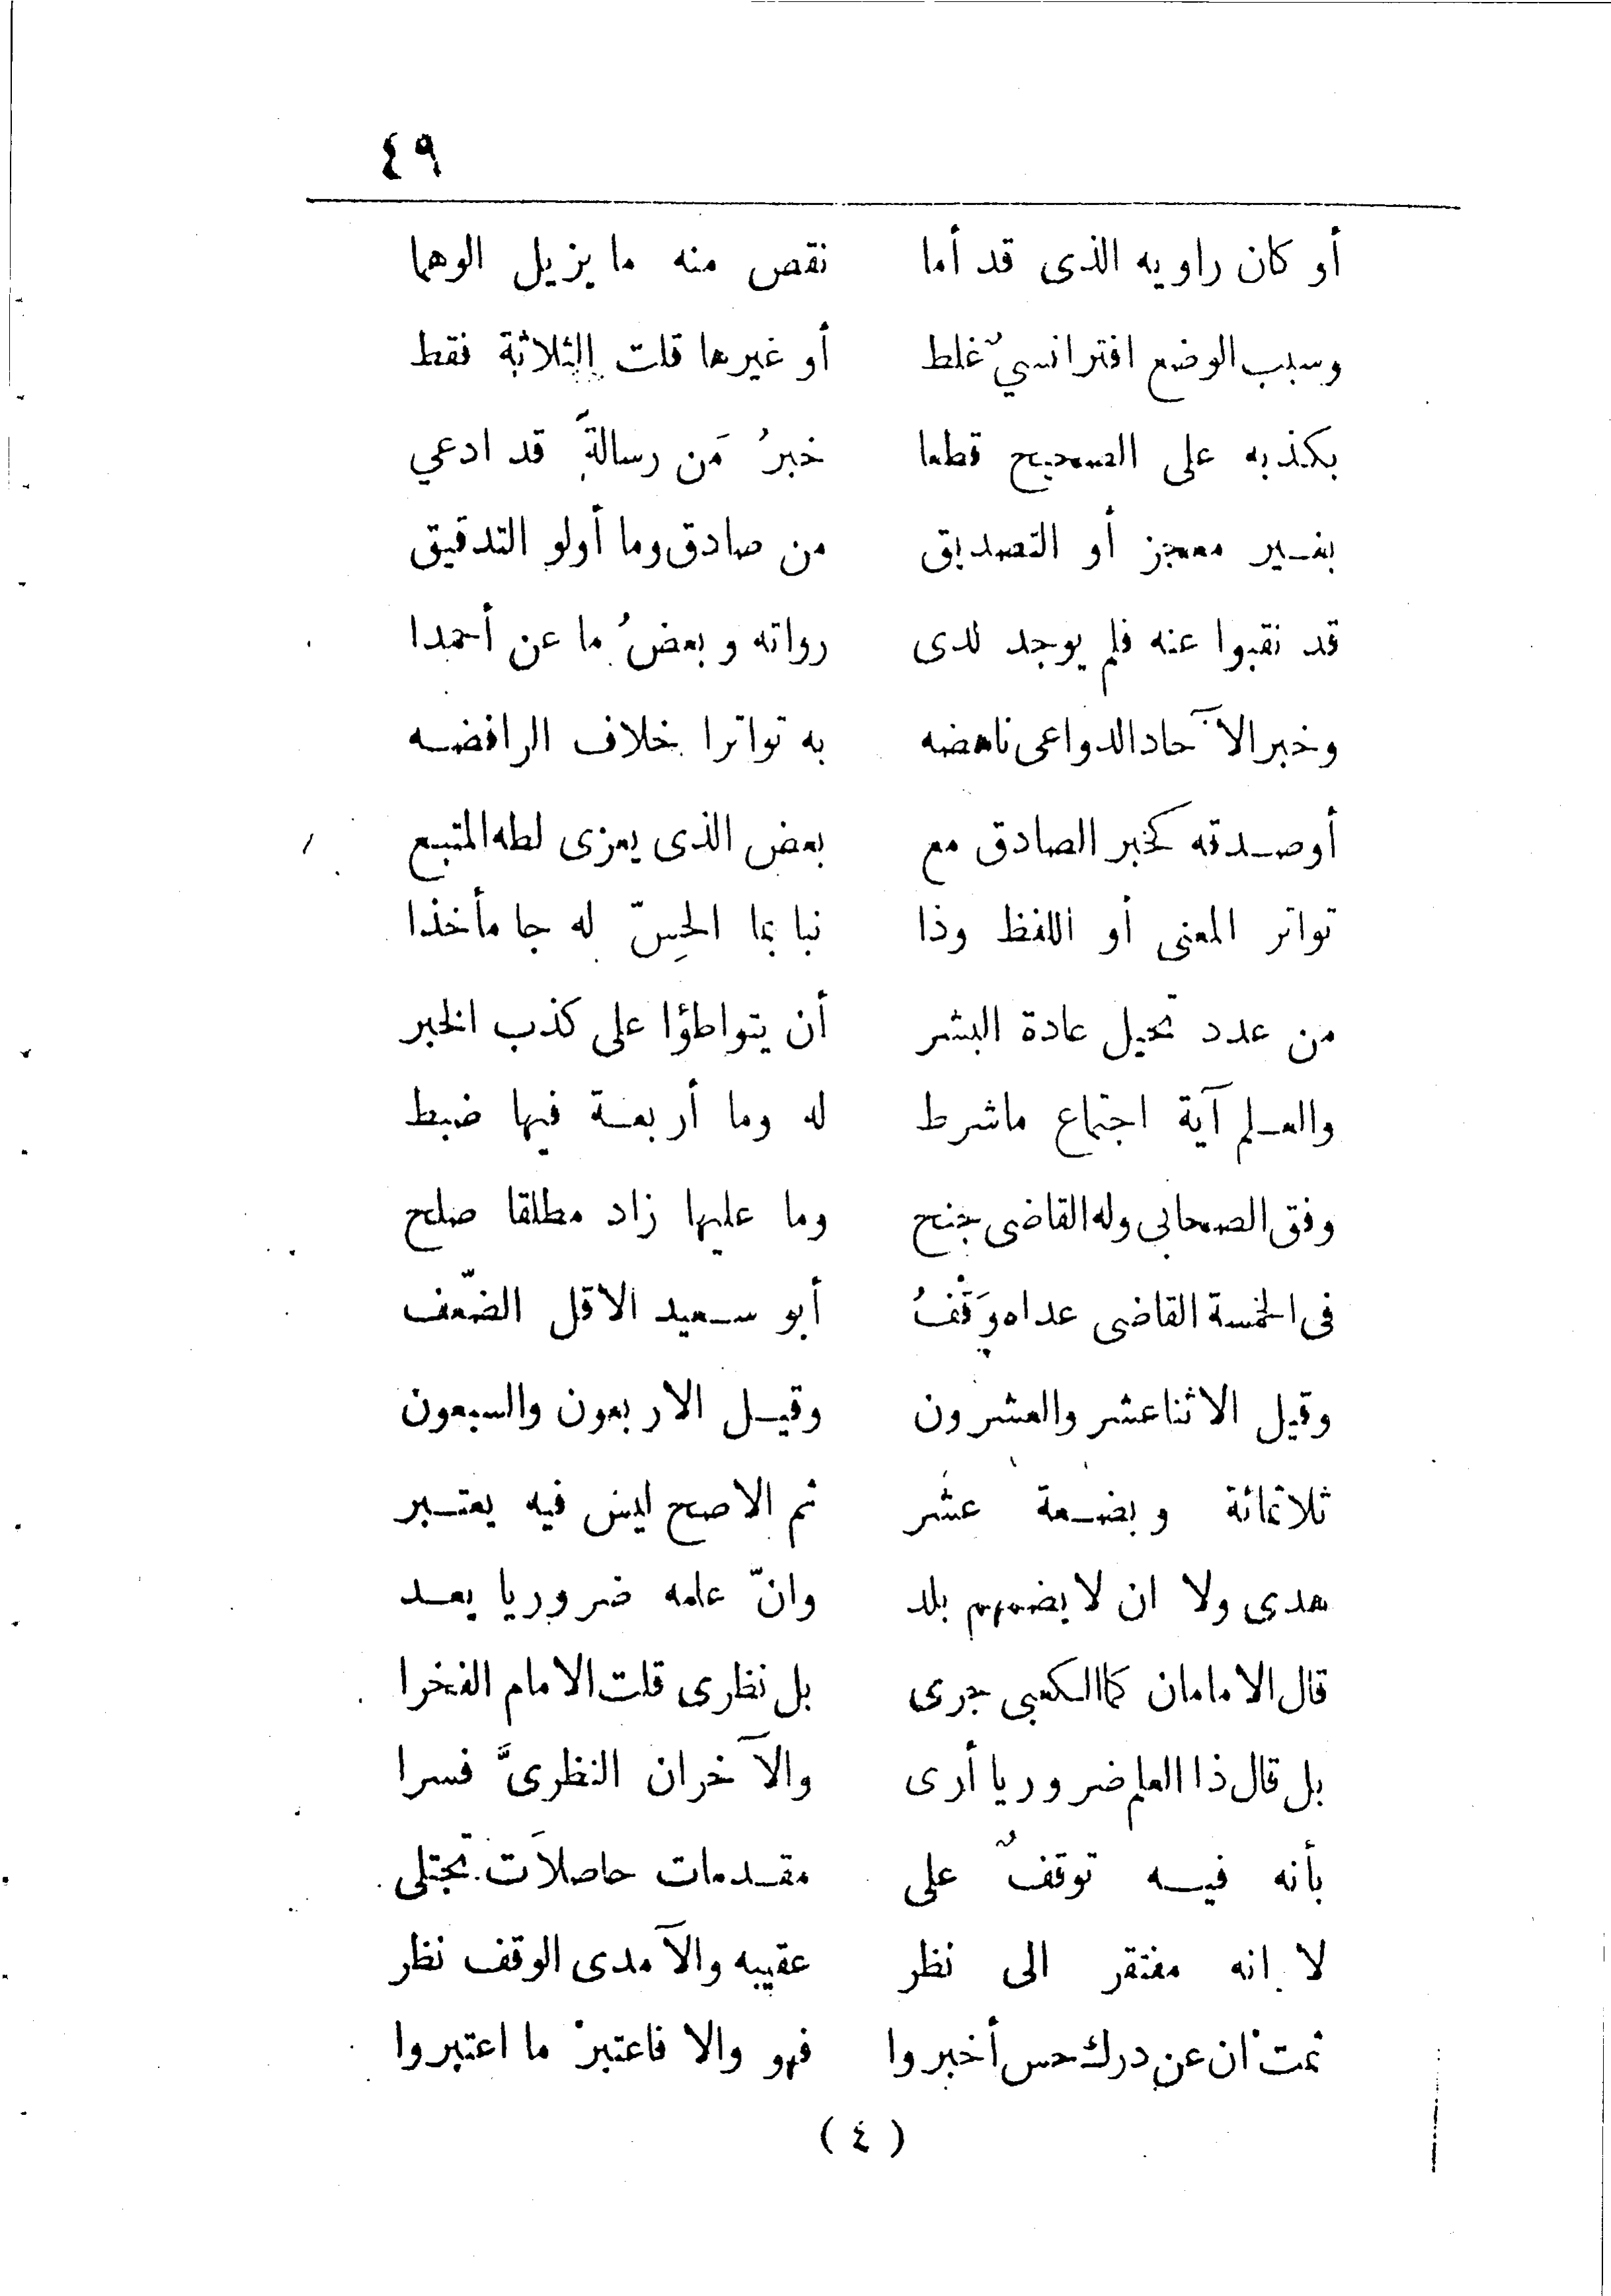 ٤٩
أو كان راويه الذى قد أما نقص منه ما يزيل الوهما
وسبب الوضع افترا نسيٌ غلط أو غيرها قلت الثلاثة فقط
بكذبه على الصحيح قطعا خبرُ مَن رسالةً قد ادعي
بغير معجز أو التصديق من صادق وما أولو التدقيق
قد نقبوا عنه فلم يوجد لدى رواته وبعضُ ما عن أحمدا
وخبر الآحاد الدواعى ناهضه به تواترا خلاف الرافضه
أو صدقه كخبر الصادق مع بعض الذى يعزى لطه المتبع
تواتر المعنى أو اللفظ وذا نبا بما الحِسّ له جا مأخذا
من عدد تحيل عادة البشر أن يتواطؤا على كذب الخبر
والعلم آية اجتماع ماشرط له وما أربعة فيها ضبط
وفق الصحابى وله القاضى جنح وما عليها زاد مطلقا صلح
فى الخمسة القاضى عداه وَقْفُ أبو سعيد الاقل الضّعف
وقيل الاثنا عشر والعشرون وقيل الاربعون والسبعون
ثلاثمائة وبضعة عشر ثم الاصح ليس فيه يعتبر
هدى ولا ان لا يضمهم بلد وانّ علمه ضروريا يعد
قال الامامان كما الكعبى جرى بل نظرى قلت الامام الفخرا
بل قال ذا العلم ضروريا أرى والآخران النظرىَّ فسرا
بأنه فيه توقفٌ على مقدمات حاصلاَت تجتلى
لا انه مفتقر الى نظر عقيبه والآمدى الوقف نظر
ثمت ان عن درك حس أخبروا فهو والا فاعتبرْ ما اعتبروا
( ٤ )